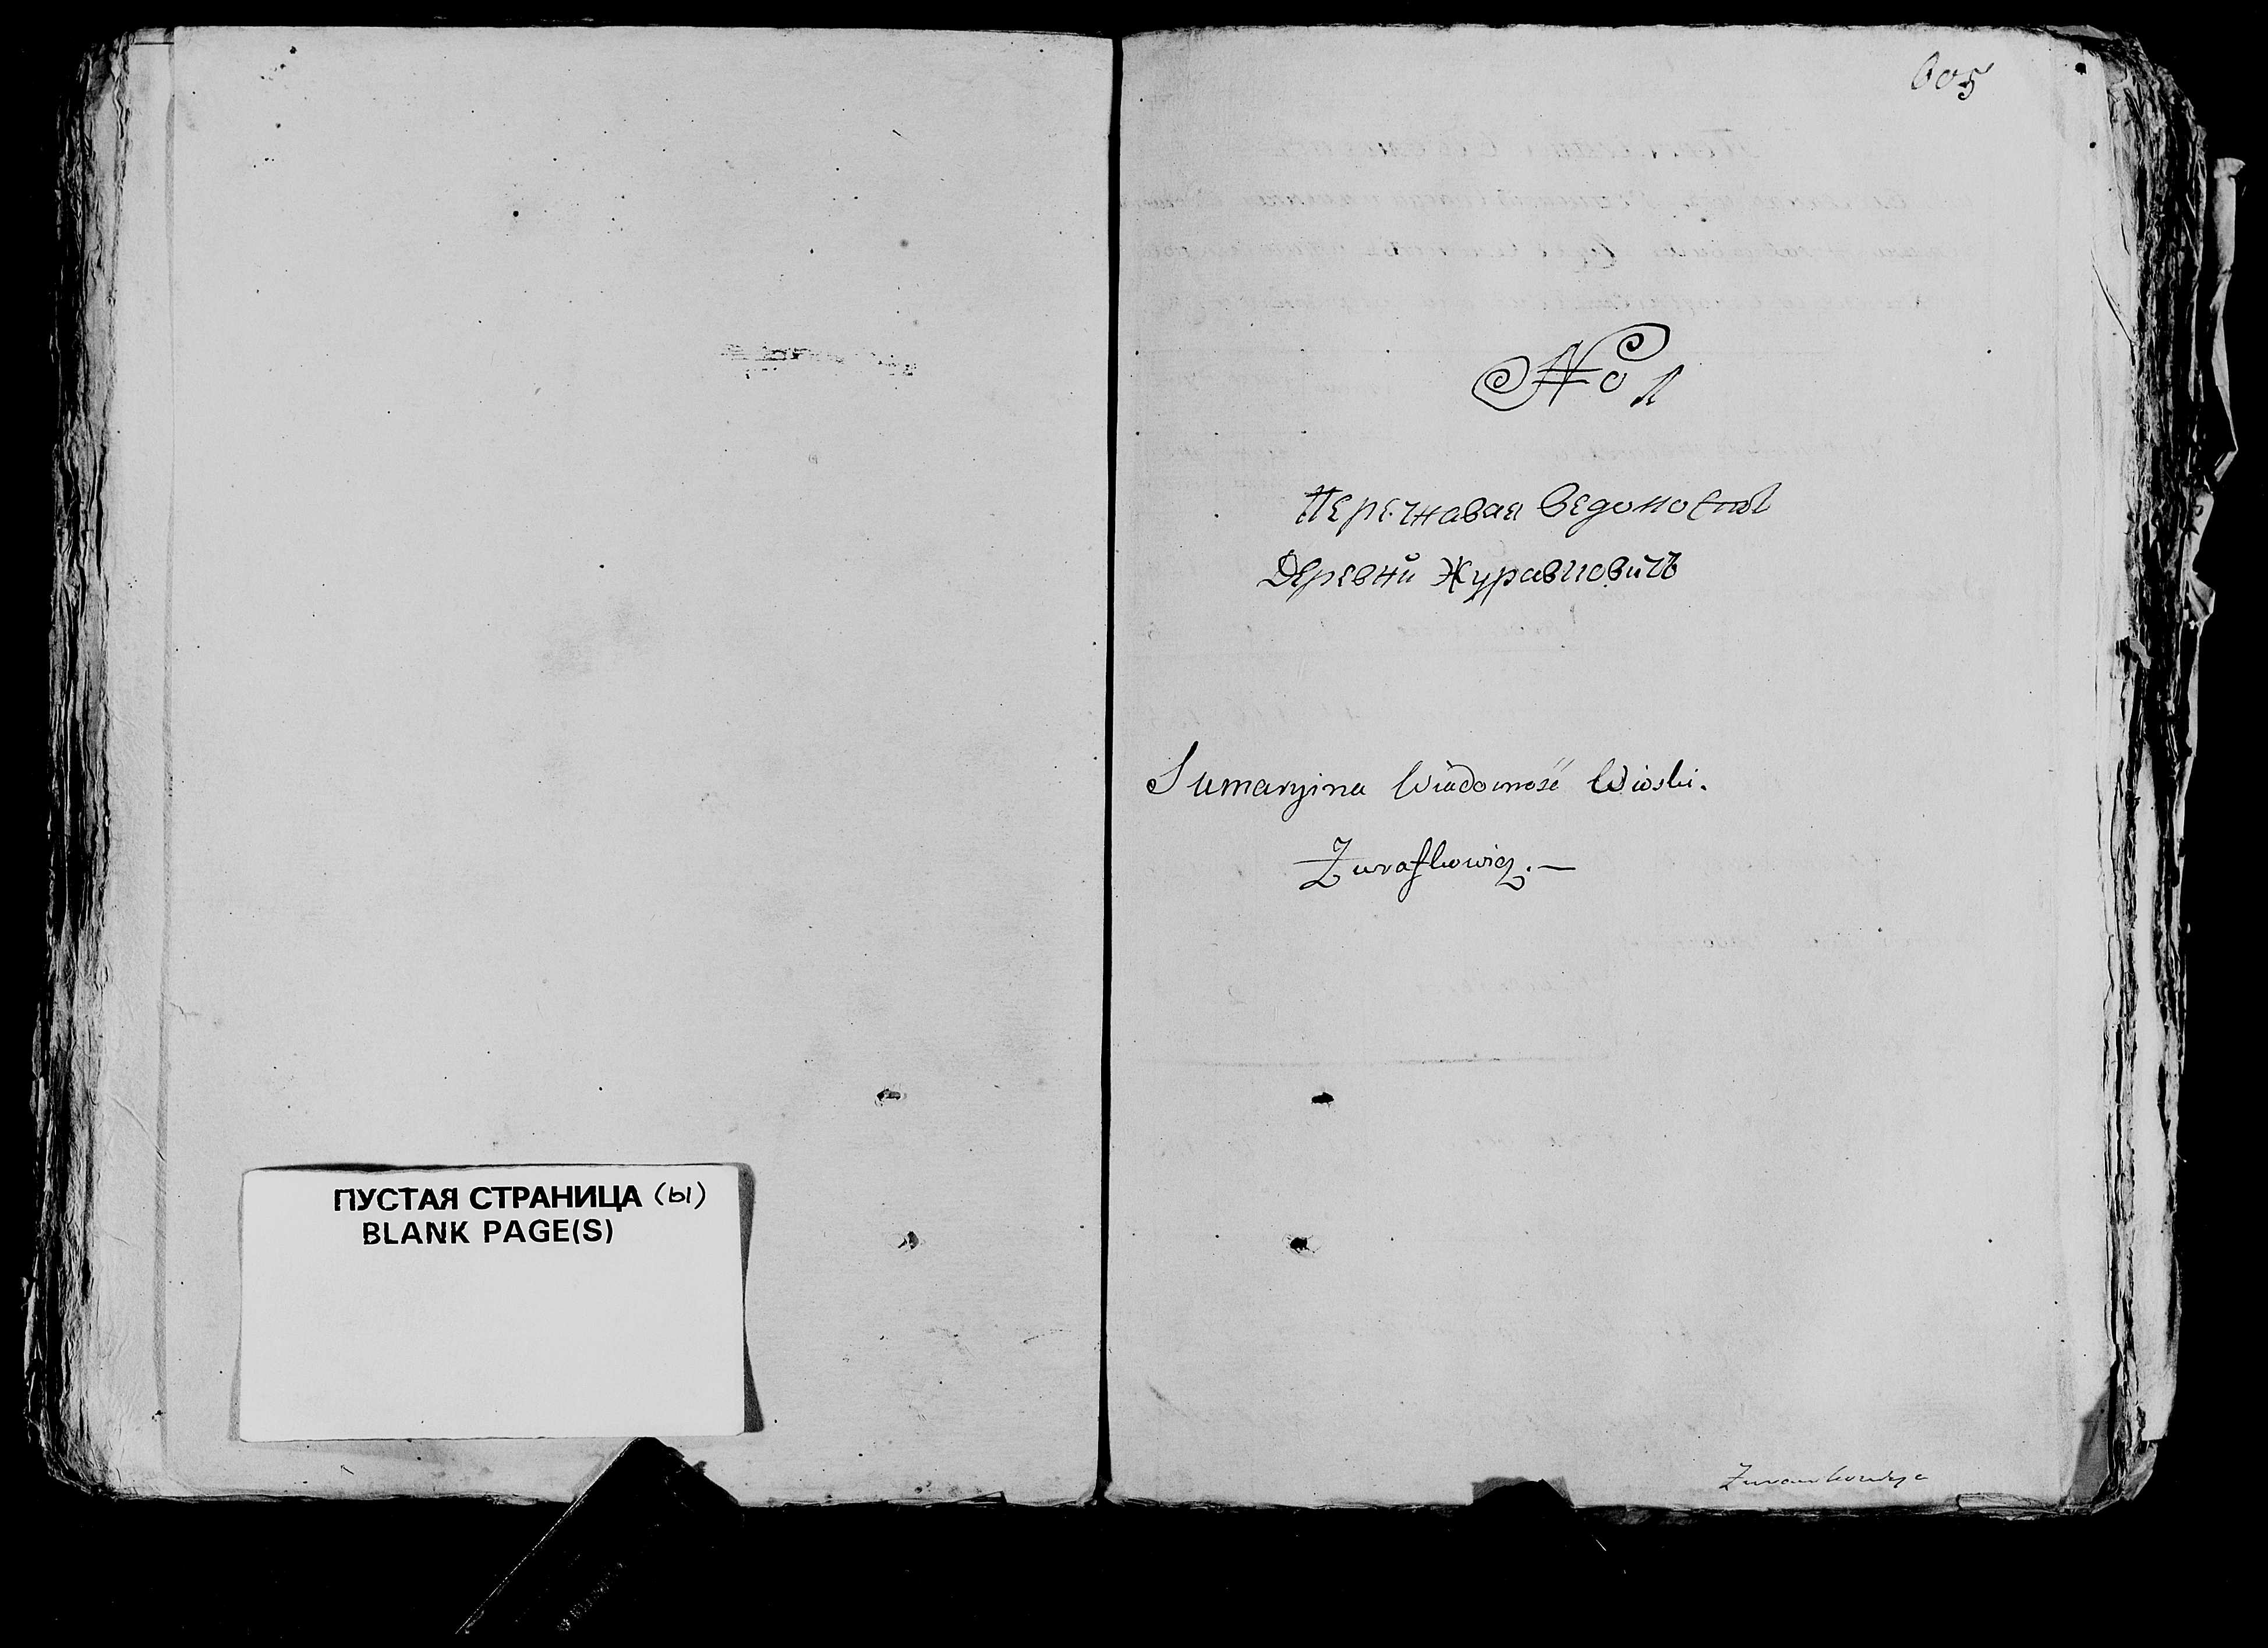 ПУСТАЯ СТРАНИЦА (ы)
BLANK PAGE(S)
605
№ 1
Перечнавая ведомость
Деревни Журавковичъ
Sumaryina Wiadomość Wioski.
Zurafkowicz. —